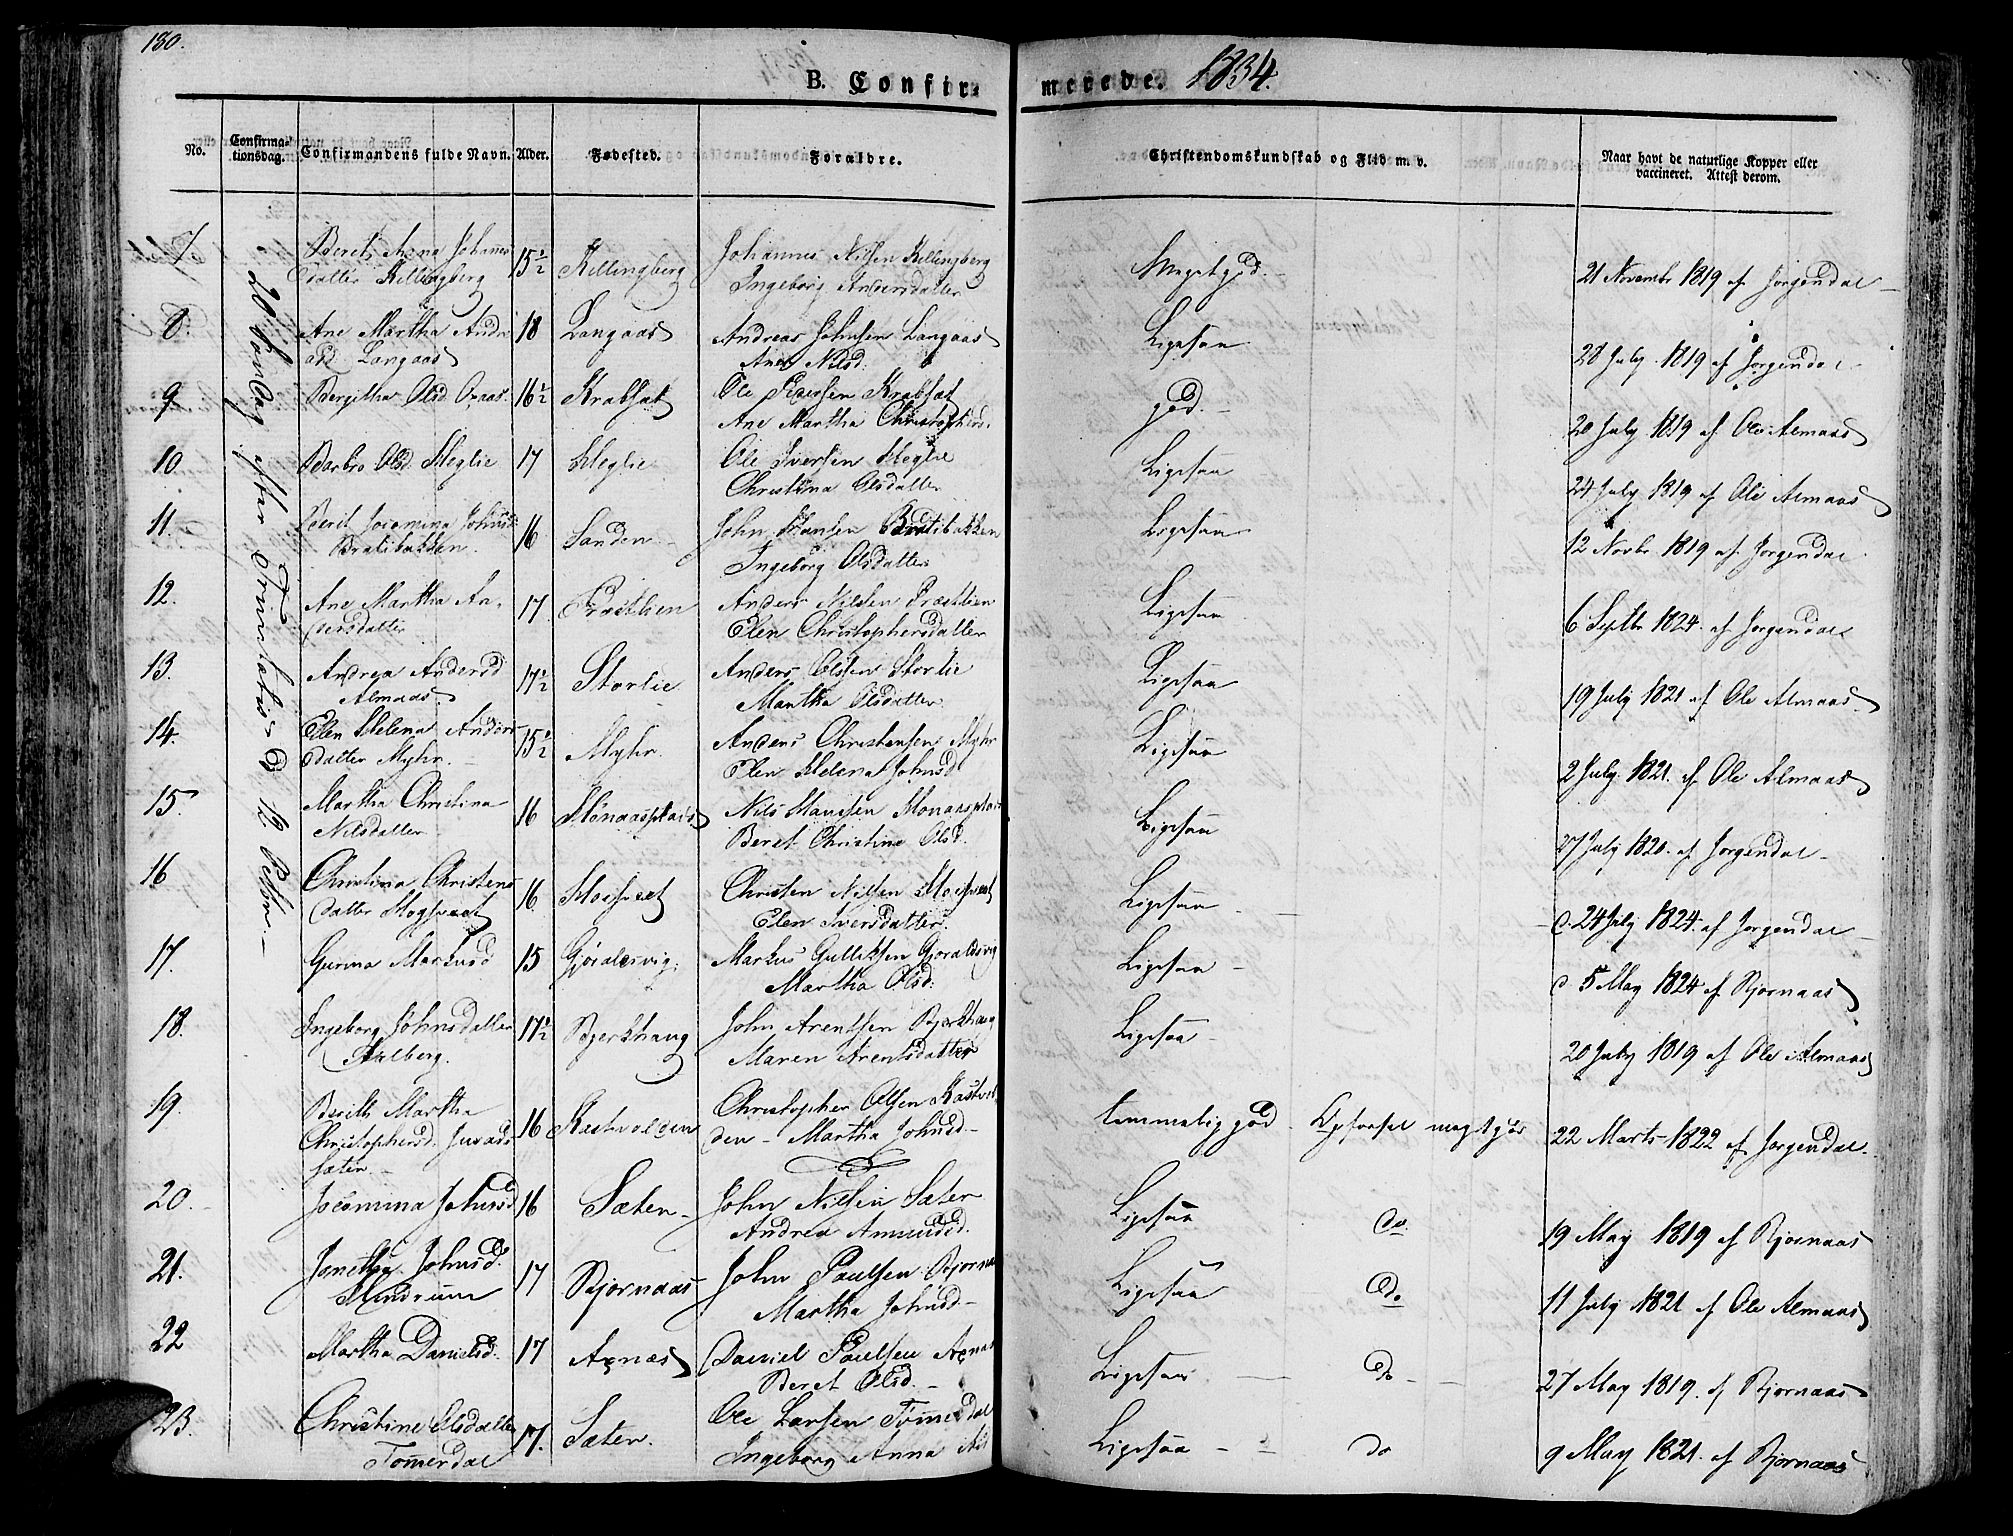 180.
B. Confirmerede. 1834.
No.
Confirmationsdag.
Confirmandens fulde Navn.
Alder.
Fødested.
Forældre.
Christendomskundskab og Flid m. v.
Naar havt de naturlige Kopper eller
vaccineret. Attest derom.
20 Søndag efter Trinitatis d 12 Octbr.
7 Beret Anna Johanes 15½ Killingberg Johannes Nilsen Killingberg Meget god. 21 Novembr 1819 af Jørgendal
datter Killingberg Ingeborg Andersdatter
8. Ane Martha Andre 18 Langaas Andreas Johnsen Langaas Ligesaa 28 July 1819 af Jørgendal
asd Langaas Ane Nilsd.
9 Bergitha Olsd 16½ Krabsæt Ole Krabsæt god. 20 July 1819 af Ole Almaas
Ane Martha Christophersd.
10 Barbro Olsd Heglie 17 Heglie Ole Iversen Heglie Ligesaa 24 July 1819 af Ole Almaas
Christina Olsdatter
11. Berit Jocomina Johnsd 16 Sanden John Hansen Bratibakken Ligesaa 12 Novbr 1819 af Jørgendal
Bratibakken. Ingeborg Olsdatter
12. Ane Martha An- 17. Præstlien Anders Nilsen Præstlien Ligesaa 6 Septbr 1824 af Jørgendal
dersdatter Elen Christophersdatter
13. Andrea Andersd 17½ Storlie Anders Olsen Storlie Ligesaa 19 July 1821 af Ole Almaas
Almaas. Martha Olsdatter
14. Elen Helena Anders 15½ Myhr. Anders Christensen Myhr Ligesaa 2 July 1821 af Ole Almaas
datter Myhr. Elen Helena Johnsd
15. Martha Christina 16 Monaasplads Nils Hansen Monaasplads Ligesaa 27 July 1820. af Jørgendal
Nilsdatter Beret Christine Olsd.
16 Christina Christens 16. Mosveet Christen Nilsen Ligesaa d. 24 July 1824 af Jørgendal
datter Elen Iversdatter
17. Gurina Markusd 15 Gjøralsvig. Markus Gulliksen Gjøraldsvig Ligesaa d. 5 May 1824 af Bjørnaas
Martha Olsd.
18. Ingeborg Johnsdatter 17½ Bjerkhaug John Arentsen Bjerkhaug Ligesaa 20 July 1819 af Ole Almaas
Aalberg. Maren Arentsdatter
19. Berith Martha 16 Kastvolden Christopher Olsen Kastvol temmelig god - Opførsel megt god 22 Marts 1822 af Jørgendal
Christophersd. den - Martha Johnsd
sæter
20. Jocomina Johnsd 16 Sæter John Nilsen Sæter Ligesaa do. 19 May 1819 af Bjørnaas
Andrea Amundsd.
21. Jonetha Johnsd. 17 Bjørnaas John Paulsen Bjørnaas Ligesaa do 11 July 1821 af Ole Almaas
Mindrum Martha Johnsd
22 Martha Danielsd. 17 Axnæs Daniel Paulsen Axnæs Ligesaa do 27 May 1819. af Bjørnaas
Beret Olsd.
23. Christine Olsdatter 17. Sæter. Ole Larsen Tømerdal Ligesaa do 9 May 1821. af Bjørnaas
Tømerdal Ingeborg Anna